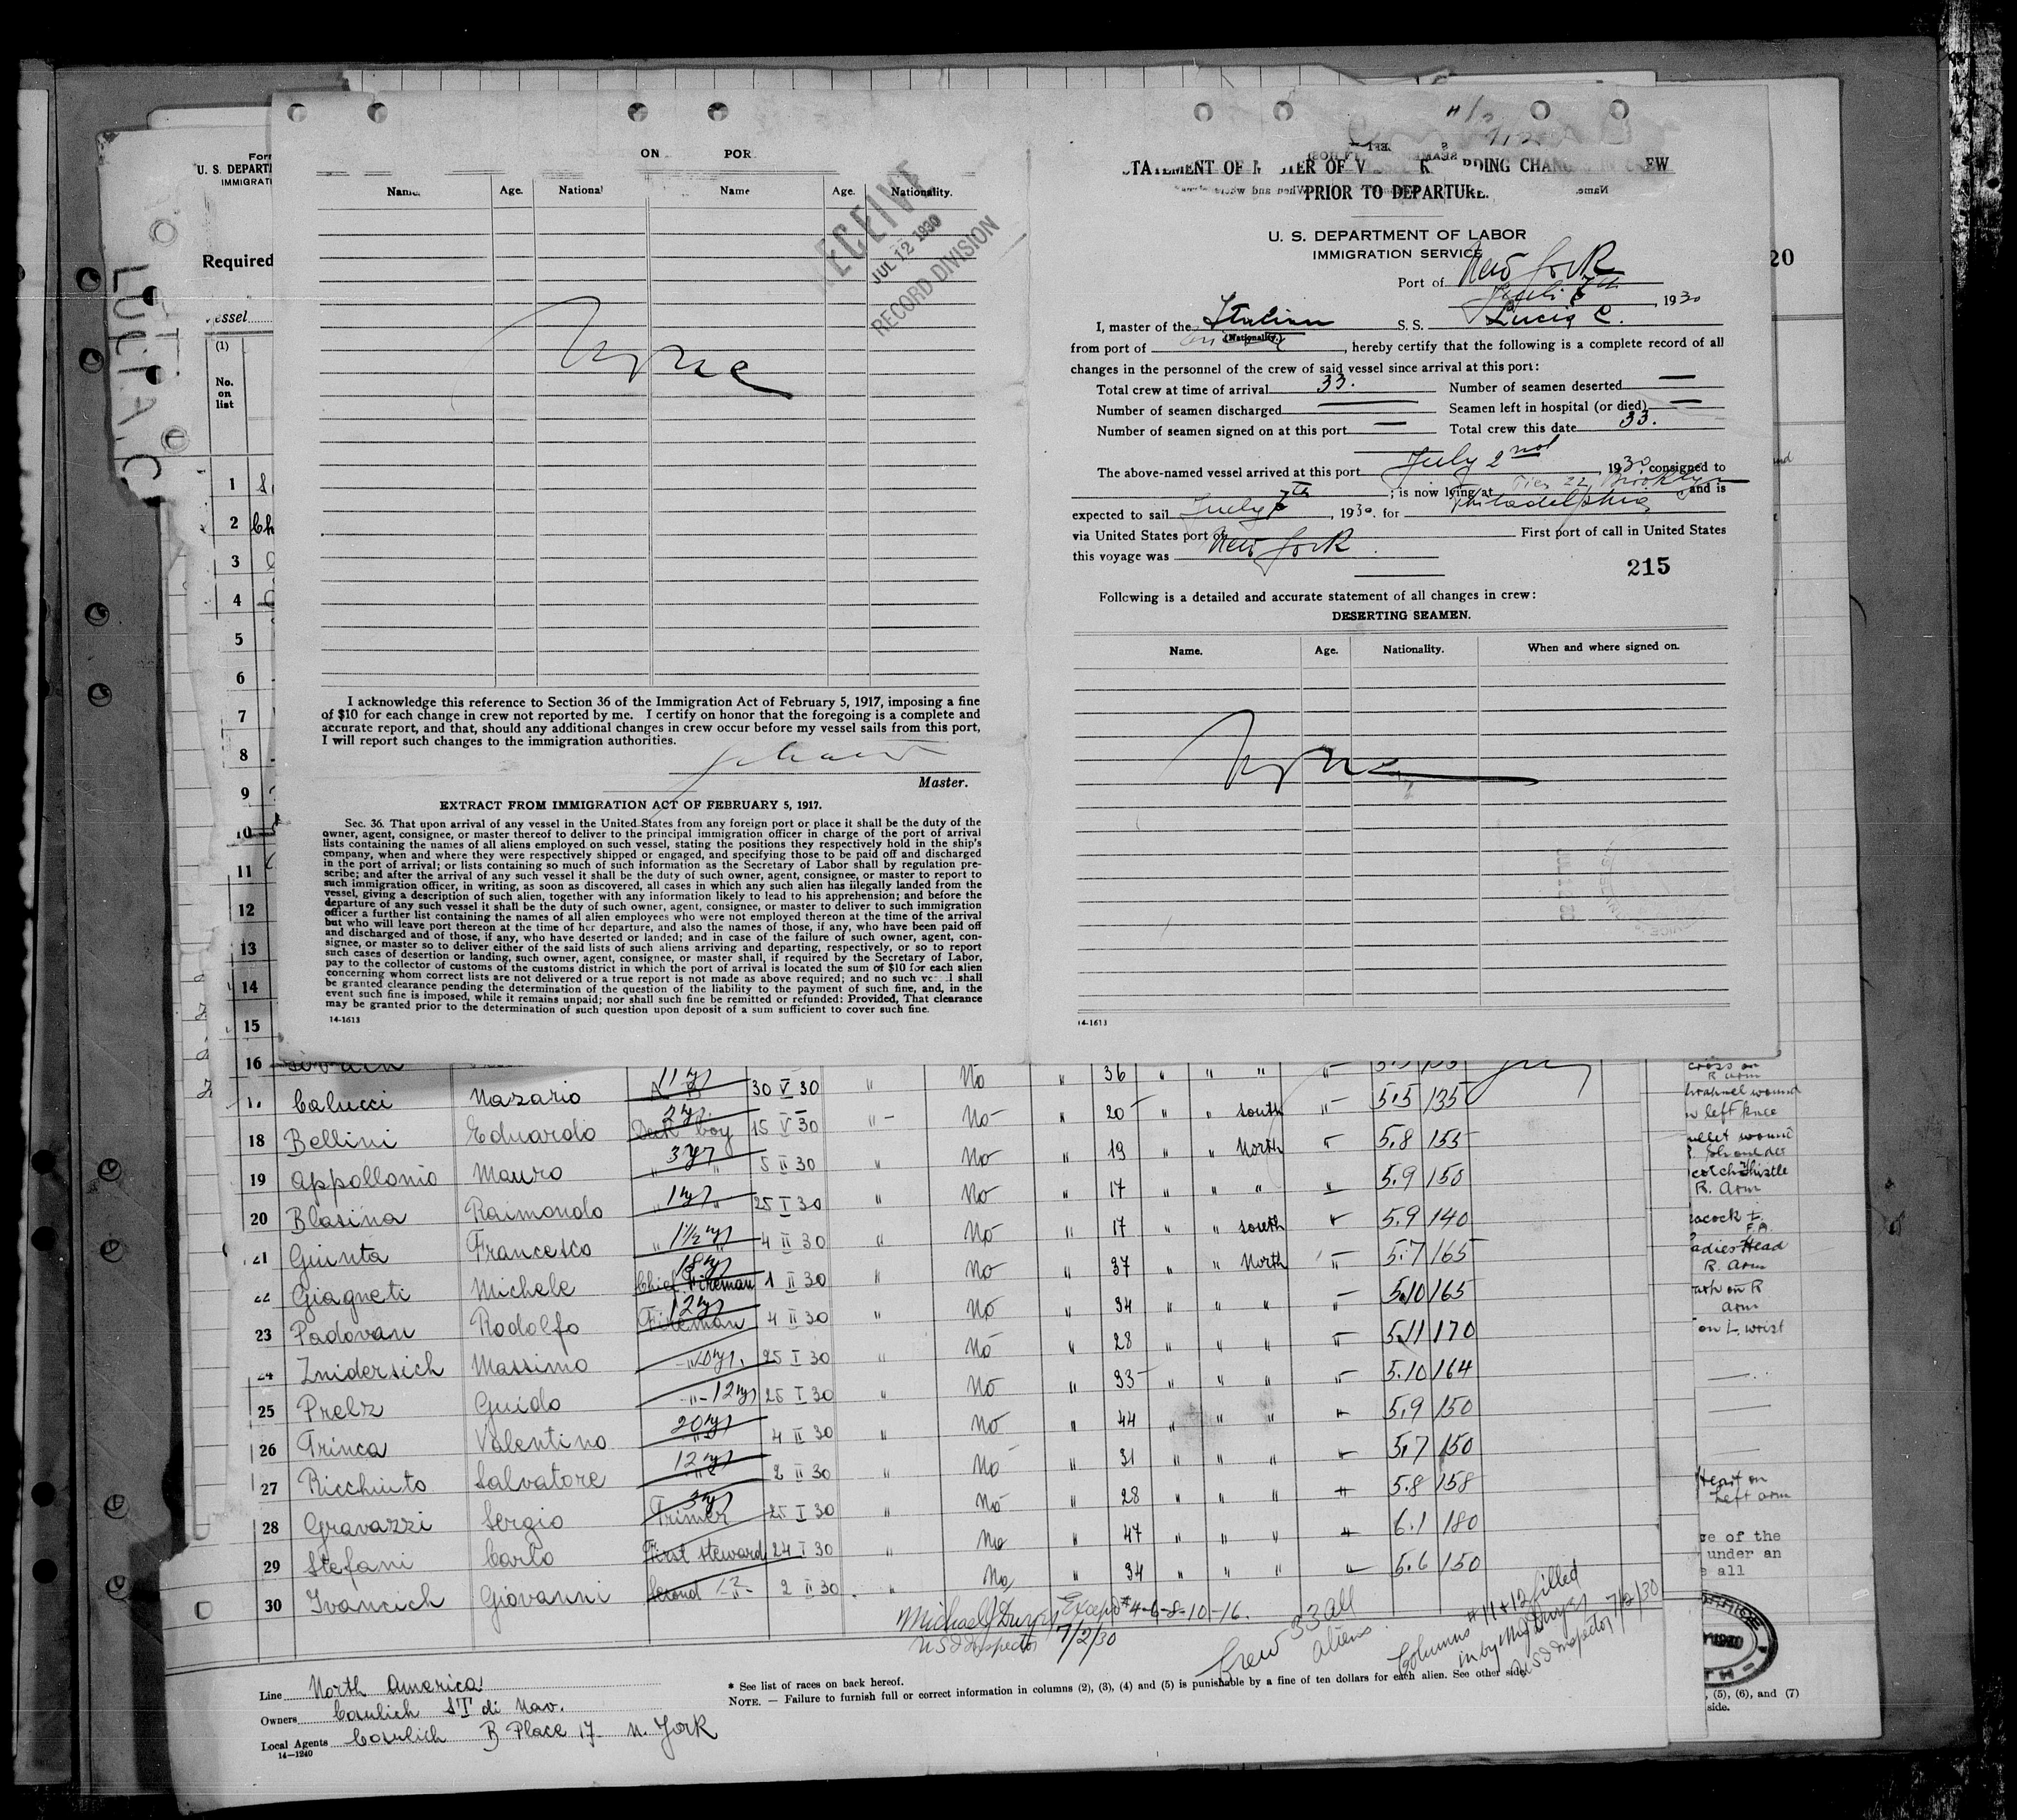 ON POR
Name Age. National Name Age. Nationality.
ECEIVE
JUL 12 1930
RECORD DIVISION
None
I acknowledge this reference to Section 36 of the Immigration Act of February 5, 1917, imposing a fine
of $10 for each change in crew not reported by me. I certify on honor that the foregoing is a complete and
accurate report, and that, should any additional changes in crew occur before my vessel sails from this port,
I will report such changes to the immigration authorities.
Master.
EXTRACT FROM IMMIGRATION ACT OF FEBRUARY 5, 1917.
Sec. 36. That upon arrival of any vessel in the United States from any foreign port or place it shall be the duty of the
owner, agent, consignee, or master thereof to deliver to the principal immigration officer in charge of the port of arrival
lists containing the names of all aliens employed on such vessel, stating the positions they respectively hold in the ship's
company, when and where they were respectively shipped or engaged, and specifying those to be paid off and discharged
in the port of arrival; or lists containing so much of such information as the Secretary of Labor shall by regulation pre-
scribe; and after the arrival of any such vessel it shall be the duty of such owner, agent, consignee, or master to report to
such immigration officer, in writing, as soon as discovered, all cases in which any such alien has illegally landed from the
vessel, giving a description of such alien, together with any information likely to lead to his apprehension; and before the
departure of any such vessel it shall be the duty of such owner, agent, consignee, or master to deliver to such immigration
officer a further list containing the names of all alien employees who were not employed thereon at the time of the arrival
but who will leave port thereon at the time of her departure, and also the names of those, if any, who have been paid off
and discharged and of those, if any, who have deserted or landed; and in case of the failure of such owner, agent, con-
signee, or master so to deliver either of the said lists of such aliens arriving and departing, respectively, or so to report
such cases of desertion or landing, such owner, agent, consignee, or master shall, if required by the Secretary of Labor,
pay to the collector of customs of the customs district in which the port of arrival is located the sum of $10 for each alien
concerning whom correct lists are not delivered or a true report is not made as above required; and no such ve l shall
be granted clearance pending the determination of the question of the liability to the payment of such fine, and, in the
event such fine is imposed, while it remains unpaid; nor shall such fine be remitted or refunded: Provided, That clearance
may be granted prior to the determination of such question upon deposit of a sum sufficient to cover such fine.
14-1613
TATEMENT OF M TER OF V R RDING CHAN IN EW
PRIOR TO DEPARTURE.
U. S. DEPARTMENT OF LABOR
IMMIGRATION SERVICE
Port of New York
7th, 1930
I, master of the Italian S. S. Lucia C.
(Nationality.)
from port of , hereby certify that the following is a complete record of all
changes in the personnel of the crew of said vessel since arrival at this port:
Total crew at time of arrival 33. Number of seamen deserted —
Number of seamen discharged — Seamen left in hospital (or died) —
Number of seamen signed on at this port — Total crew this date 33.
The above-named vessel arrived at this port July 2nd, 1930, consigned to
; is now lying at Pier 22 Brooklyn and is
expected to sail July 7th, 1930. for Philadelphia
via United States port of First port of call in United States
this voyage was New York.
215
Following is a detailed and accurate statement of all changes in crew:
DESERTING SEAMEN.
Name. Age. Nationality. When and where signed on.
None
14-1613
Form
U. S. DEPARTM
IMMIGRATI
Required
essel
LUCIA C
(1)
No.
on
list
1
2 Ch
3
4
5
6
7
8
9
10
11
12
13
14
15
16
20
17 Calucci Nazario 11 y 30 V 30 " No " 36 " " " "
18 Bellini Eduardo Deck boy 2y. 15 V 30 " No " 20 " " South " 5.5 135
19 Appollonio Mauro " 3 y " 5 II 30 " No " 19 " " North " 5.8 155
20 Blasina Raimondo " 1 y " 25 I 30 " No " 17 " " " " 5.9 150
21 Giunta Francesco " 1 1/2 y " 4 II 30 " No " 17 " " South " 5.9 140
22 Giagneti Michele Chief Fireman 18 y 1 II 30 " No " 37 " " North " 5.7 165
23 Padovan Rodolfo Fireman 12 y 4 II 30 " No " 34 " " " " 5.10 165
24 Znidersich Massimo " 10 y. 25 I 30 " No " 28 " " " " 5.11 170
25 Prelz Guido " 12 y 25 I 30 " No " 35 " " " " 5.10 164
26 Trinca Valentino 20 y " 4 II 30 " No " 44 " " " " 5.9 150
27 Ricchiuto Salvatore 12 y " 2 II 30 " No " 31 " " " " 5.7 150
28 Gravazzi Sergio Trimer 3 y 25 I 30 " No " 28 " " " " 5.8 158
29 Stefani Carlo First steward 24 I 30 " No " 47 " " " " 6.1 180
30 Ivancich Giovanni Second " 2 II 30 " No " 34 " " " " 5.6 150
Michael J Dwyer Except #4-6-8-10-16.
US Inspector 7/2/30
Crew 33 all
aliens
Columns #11+12 filled
in by M J Dwyer
US Inspector 7/2/30
Line North America
Owners Cosulich ST di Nav.
Local Agents Cosulich B Place 17 N. York
14—1240
* See list of races on back hereof.
NOTE. — Failure to furnish full or correct information in columns (2), (3), (4) and (5) is punishable by a fine of ten dollars for each alien. See other side.
cross on
R arm
wound
left knee
wound
R. Shoulder
Thistle
R. Arm
Head
R. Arm
on R
arm
on L. wrist
Heart on
Left arm
ge of the
under an
e all
, (5), (6), and (7)
side.